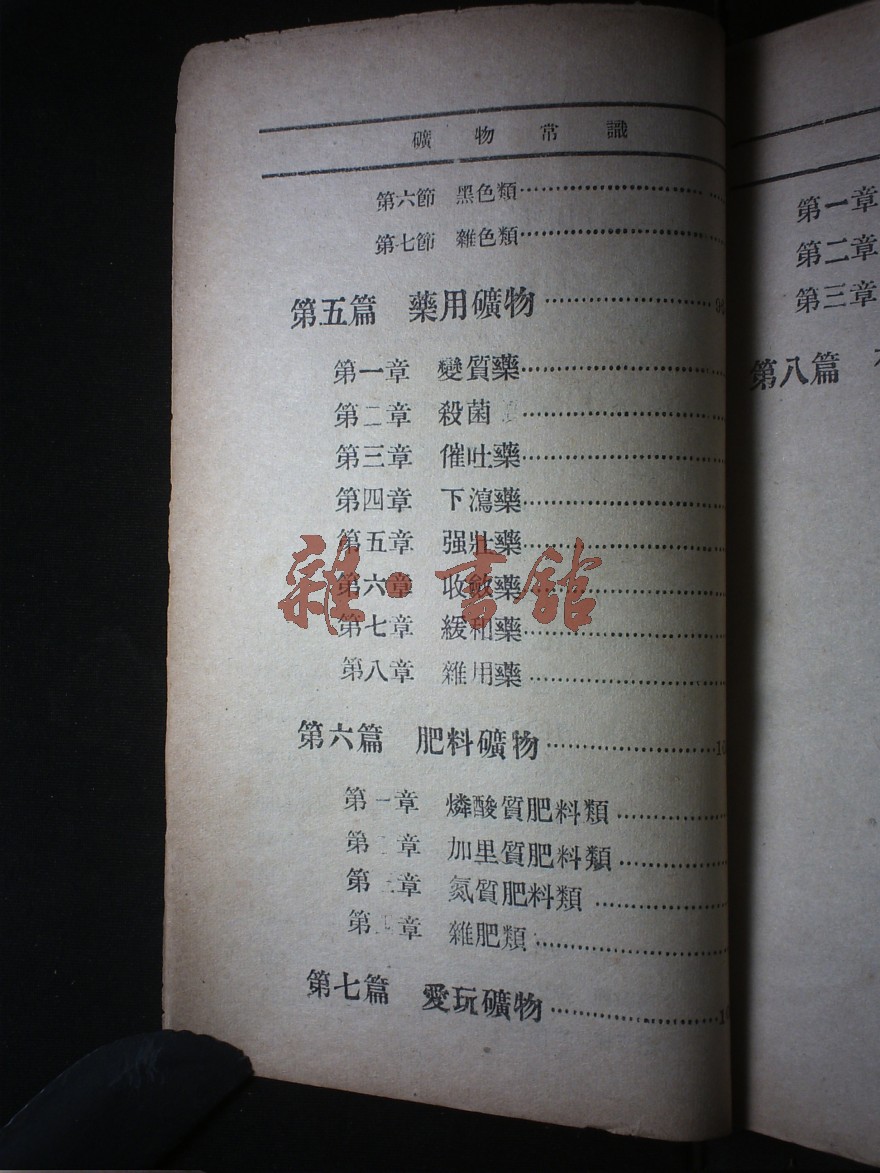 礦物常識
第六節 黑色類
第七節 雜色類
第五篇 藥用礦物
第一章 變質藥
第二章 殺菌
第三章 催吐藥
第四章 下瀉藥
第五章 强壯藥
第六章 收斂藥
第七章 緩和藥
第八章 雜用藥
第六篇 肥料礦物
第一章 燐酸質肥料類
第二章 加里質肥料類
第三章 氮質肥料類
第四章 雜肥類
第七篇 愛玩礦物
雜·書館
第一章
第二章
第三章
第八篇